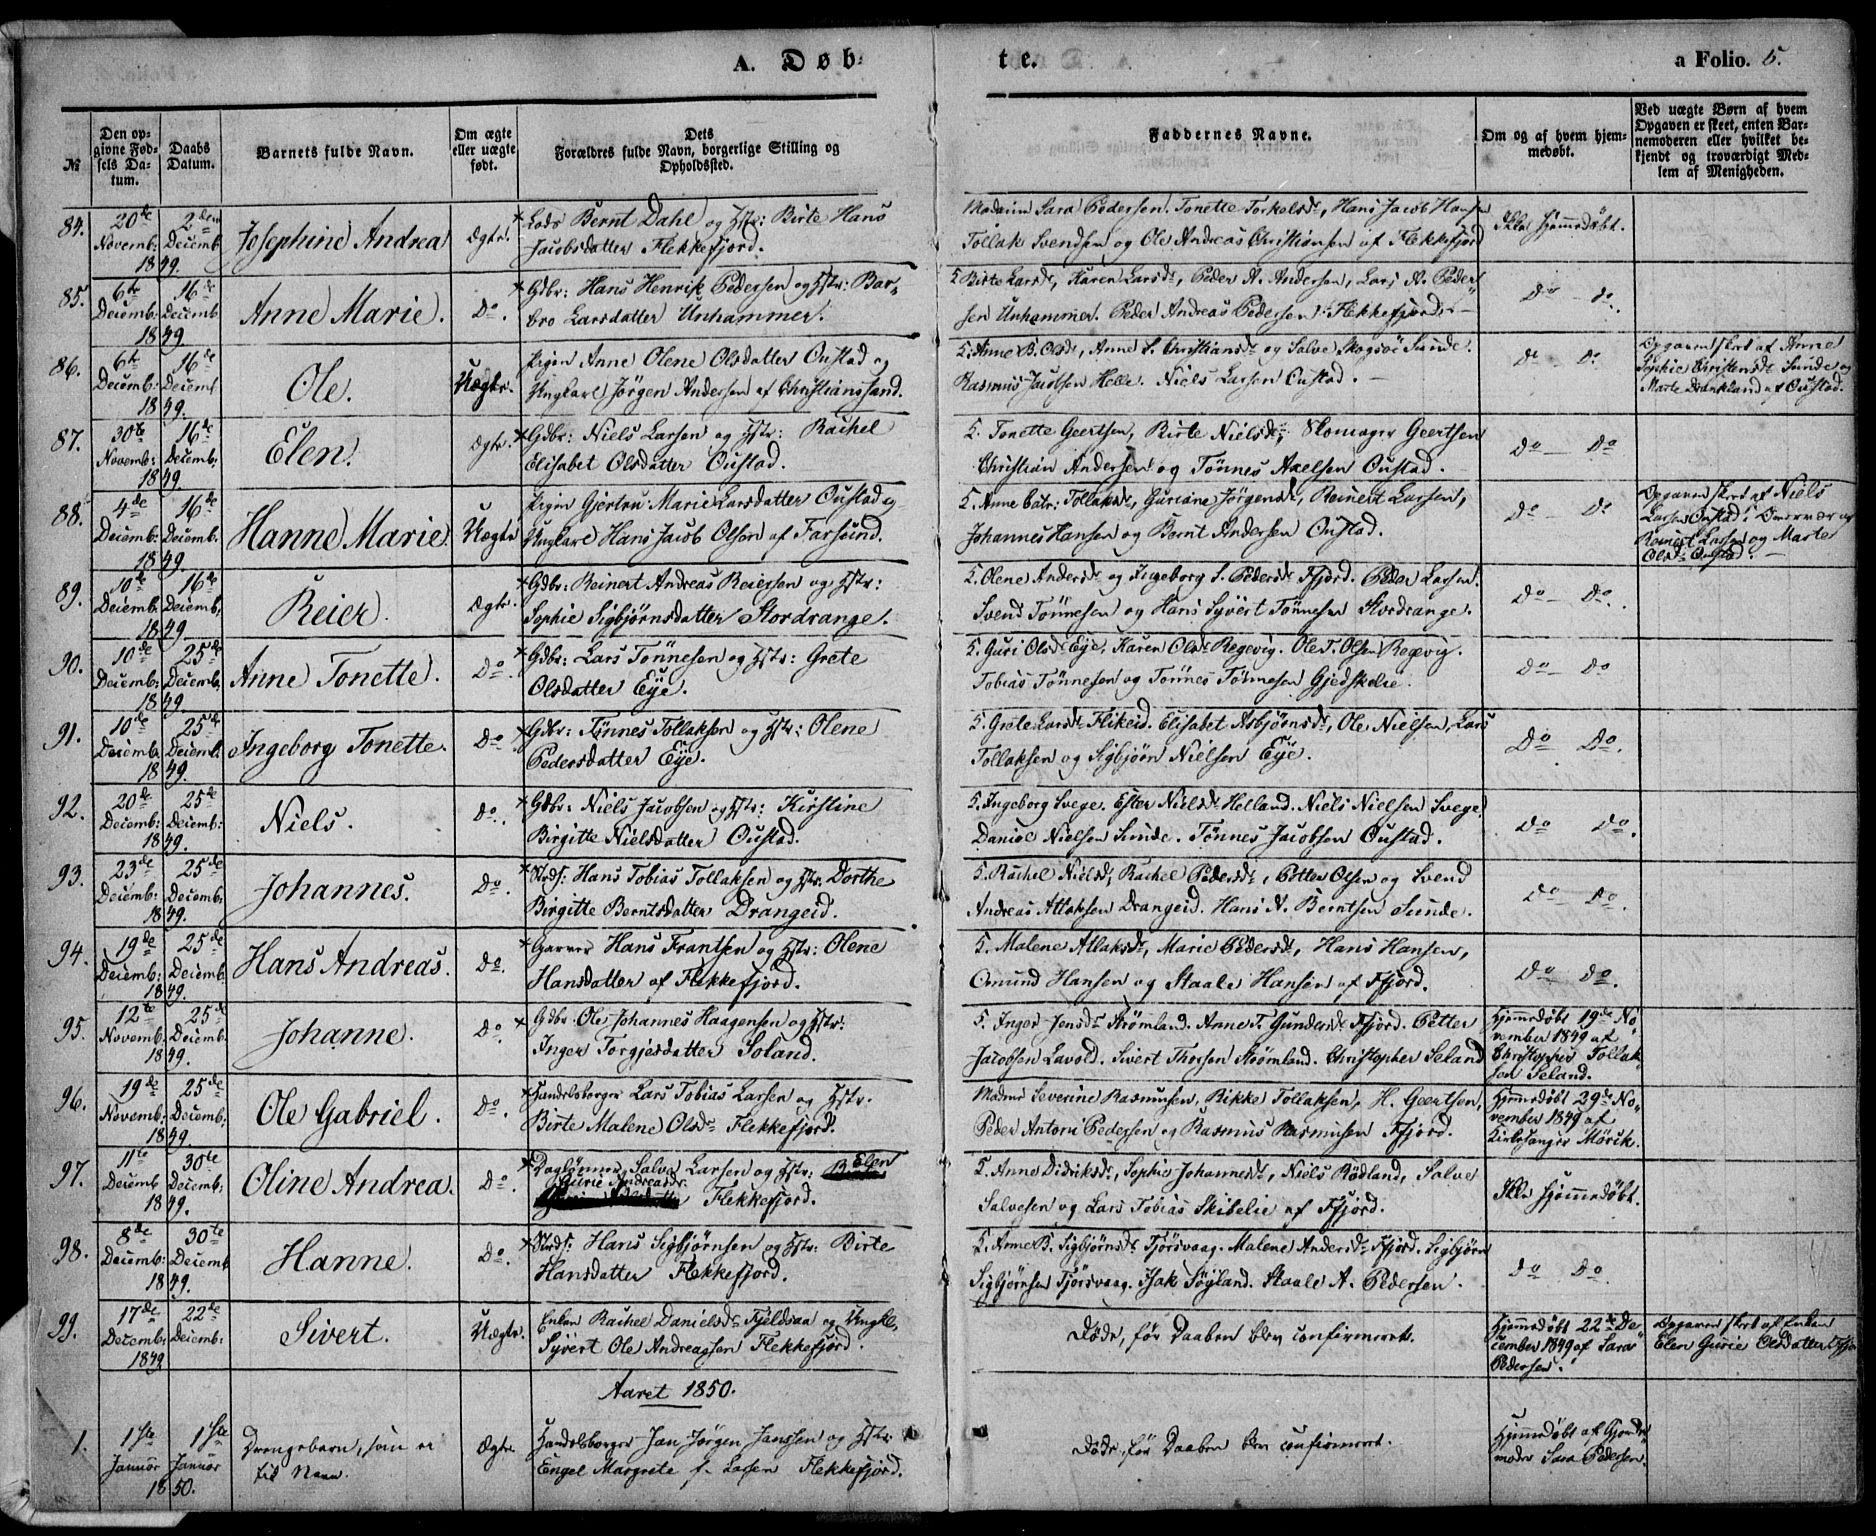 A. Døb-
te.
a Folio. 5.
№
Den op-
givne Fød-
sels Da-
tum.
Daabs
Datum.
Barnets fulde Navn.
Om ægte
eller uægte
født.
Dets
Forældres fulde Navn, borgerlige Stilling og
Opholdssted.
Faddernes Navne.
Om og af hvem hjem-
medøbt.
Ved uægte Børn af hvem
Opgaven er skeet, enten Bar-
nemoderen eller hvilket be-
kjendt og troværdigt Med-
lem af Menigheden.
84. 20de Novemb: 1849. 2den Decemb. Josephine Andrea Ægte. Lods Bernt Dahl og Hstr: Birte Hans
Jacobsdatter Flekkefjord.
Madam Sara Pedersen. Tonette Torkelsdr, Hans Jacob Hansen
Tollak Svendsen og Ole Andreas Christiansen af Flekkefjord
Ikke hjemmedøbt.
85. 6te Decemb: 1849. 16de Decemb Anne Marie. Do. Gdbr: Hans Henrik Pedersen og Hstr: Bar-
bro Larsdatter Unhammer.
5 Birte Larsdr, Karen Larsdr, Peder A. Andersen, Lars A. Peder-
sen Unhammer. Peder Andreas Pedersen Flekkefjord.
Do - do.
86. 6te Decemb: 1849. 16de Decemb Ole. Uægte. Pigen Anne Olene Olsdatter Oustad og
Ungkarl Jørgen Andersen af Christianssand.
5. Anne B. Olsdr, Anne S. Christiansdr og Salve Skogsøe Sunde.
Rasmus Jacobsen Helle. Niels Larsen Oustad.
Do Do.
Opgaven skeet af Anne
Sophie Christensdr Sunde og
Marte Drankland af Oustad.
87. 30te Novemb: 1849. 16de Decemb. Elen. Ægte. Gdbr: Niels Larsen og Hstr: Rachel
Elisabet Olsdatter Oustad.
5. Tonette Geertsen, Birte Nielsdr, Geertsen
Christian Andersen og Tønnes Axelsen Oustad.
Do - Do
88. 4de Decemb: 1849. 16de Decemb. Hanne Marie. Uægte Pigen Gjertru Marie Larsdatter Oustad og
Ungkarl Hans Jacob Olsen af Farsund.
5. Anne Catr: Tollaksdr, Guriane Jørgensdr, Reinert Larsen,
Johannes Hansen og Bernt Andersen Oustad.
Do - Do
Opgaven skeet af Niels
Larsen Oustad i Overvær og
Reinert Larsen og Marte
Olsdr Oustad.
89. 10de Decemb. 1849 16de Decemb. Reier. Ægte. Gdbr: Reinert Andreas Reiersen og Hstr:
Sophie Sigbjørnsdatter Stordrange.
5. Olene Andersdr og Ingeborg S. Pedersdr Ffjord. Peder Larsen.
Svend Tønnesen og Hans Syvert Tønnesen Stordrange.
Do - Do.
90. 10de Decemb: 1849. 25de Decemb. Anne Tonette. Do. Gdbr: Lars Tønnesen og Hstr: Grete
Olsdatter Eye.
5. Guri Olsdr Eye. Karen Olsdr Regevig. Ole T. Olsen Regevig.
Tobias Tønnesen og Tønnes Tønnesen Gjedskelie.
Do - Do
91. 10de Decemb: 1849. 25de Decemb. Ingeborg Tonette. Do. Gdbr: Tønnes Tollaksen og Hstr: Olene
Pedersdatter Eye.
5. Grete Larsdr Flikeid. Elisabet Asbjørnsdr, Ole Nielsen, Lars
Tollaksen og Sigbjørn Nielsen Eye.
Do Do.
92. 20de Decemb: 1849. 25de Decemb: Niels. Do. Gdbr: Niels Jacobsen og Hstr: Kirstine
Birgitte Nielsdatter Oustad.
5. Ingeborg Svege. Ester Nielsdr Helland. Niels Nielsen Svege.
Daniel Nielsen Sunde. Tønnes Jacobsen Oustad.
Do Do.
93. 23de Decemb: 1849. 25de Decemb: Johannes. Do. Hans Tobias Tollaksen og Hstr: Dorthe
Birgitte Berntsdatter Drangeid.
5. Rachel Nielsdr, Rachel Pedersdr, Petter Olsen og Svend
Andreas Atlaksen Drangeid. Hans A. Berntsen Sunde.
Do - Do.
94. 19de Decemb: 1849. 25de Decemb: Hans Andreas. Do. Garver Hans Frantsen og Hstr: Olene
Hansdatter af Flekkefjord.
5. Malene Atlaksdr, Marie Pedersdr, Hans Hansen,
Omund Hansen og Staale Hansen af Ffjord.
Do Do.
95. 12te Novemb. 1849. 25de Decemb. Johanne. Do. Gdbr. Ole Johannes Haagensen og Hstr:
Inger Torgjesdatter Soland.
5. Inger Jensdr Strømland. Anne T. Gundersdr Ffjord. Petter
Jacobsen Lavold. Sivert Thorsen Strømland. Christopher Seland
Hjemmedøbt 19de No-
vember 1849 af
Christopher Tollak-
sen Seland.
96. 19de Novemb: 1849 25de Decemb: Ole Gabriel. Do. Handelsborger Lars Tobias Larsen og Hstr.
Birte Malene Olsdr Flekkefjord.
Madme Severine Rasmusen, Rikke Tollaksen, H. Geertsen,
Peder Anton Pedersen og Rasmus Rasmusen Ffjord.
Hjemmedøbt 29de No-
vember 1849 af
Kirkesanger Mørik.
97. 11te Decemb 1849. 30te Decemb: Oline Andrea. Do. Dagløner Salve Larsen og Hstr: Elen
Gurie Andreasdr. Flekkefjord.
5. Anne Didriksdr, Sophie Johannesdr, Niels Rødland, Salve
Salvesen og Lars Tobias Skibelie af Ffjord.
Ikke hjemmedøbt.
98. 8de Decemb: 1849. 30te Decemb Hanne. Do. Hans Sigbjørnsen og Hstr: Birte
Hansdatter Flekkefjord.
5. Anne B. Sigbjørnsdr Tjørsvaag. Malene Andersdr Ffjord. Sigbjørn
Sigbjørnsen Tjørsvaag. Isak Søyland. Staale A. Pedersen.
Do Do.
99. 17de Decemb: 1849 22de Decemb: Sivert. Uægte. Enken Rachel Danielsdr Fjeldsaa og Ungk.
Syvert Ole Andreassen Flekkefjord.
Døde, før Daaben blev confirmeret.
Hjemmedøbt 22de De-
cember 1849 af Sara
Pedersen.
Opgaven skeet af Enken
Elen Gurie Olsdatter Ffjor
Aaret 1850.
1. 1ste Januar 1850. 1ste Januar Drengebarn, som er
til Navn. Ægte Handelsborger Jan Jørgen Janssen og Hstr:
Engel Margrete f. Larsen Flekkefjord.
Døde, før Daaben blev confirmeret.
Hjemmedøbt af Gjorde-
moder Sara Pedersen.